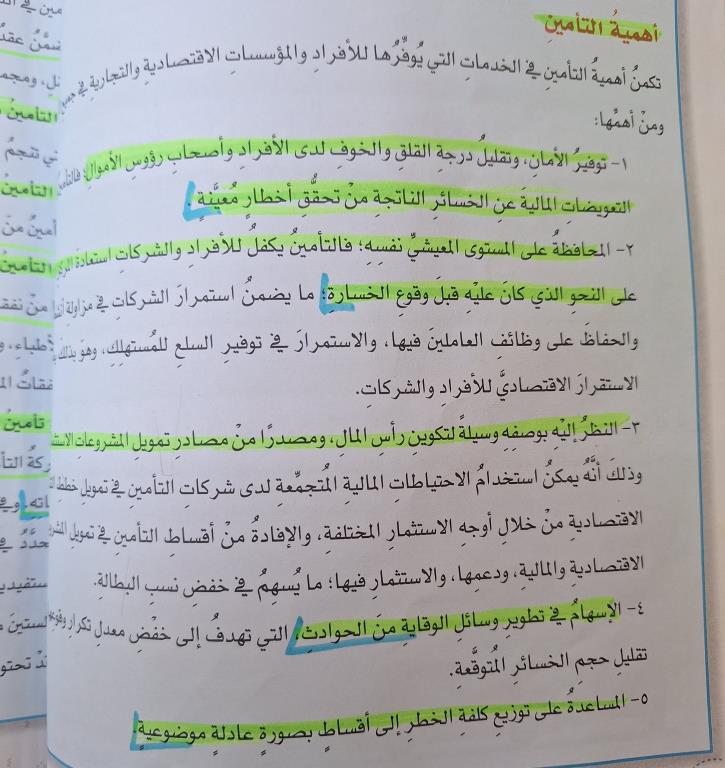 أهميةُ التأمينِ
تكمنُ أهميةُ التأمينِ في الخدماتِ التي يُوفِّرُها للأفرادِ والمؤسساتِ الاقتصاديةِ والتجاريةِ في
ومنْ أهمِّها:
١- توفيرُ الأمانِ، وتقليلُ درجةِ القلقِ والخوفِ لدى الأفرادِ وأصحابِ رؤوسِ الأموالِ؛
التعويضاتِ الماليةَ عنِ الخسائرِ الناتجةِ منْ تحقُّقِ أخطارٍ مُعيَّنةٍ.
٢- المحافظةُ على المستوى المعيشيِّ نفسِهِ؛ فالتأمينُ يكفلُ للأفرادِ والشركاتِ استعادةَ
على النحوِ الذي كانَ عليْهِ قبلَ وقوعِ الخسارةِ؛ ما يضمنُ استمرارَ الشركاتِ في مزاولةِ
والحفاظَ على وظائفِ العاملينَ فيها، والاستمرارَ في توفيرِ السلعِ للمُستهلِكِ، وهوَ بذلكَ
الاستقرارَ الاقتصاديَّ للأفرادِ والشركاتِ.
٣- النظرُ إليْهِ بوصفِهِ وسيلةً لتكوينِ رأسِ المالِ، ومصدرًا منْ مصادرِ تمويلِ المشروعاتِ
وذلكَ أنَّهُ يمكنُ استخدامُ الاحتياطاتِ الماليةِ المُتجمِّعةِ لدى شركاتِ التأمينِ في تمويلِ خططِ
الاقتصاديةِ منْ خلالِ أوجهِ الاستثمارِ المختلفةِ، والإفادةُ منْ أقساطِ التأمينِ في تمويلِ
الاقتصاديةِ والماليةِ، ودعمِها، والاستثمارِ فيها؛ ما يُسهِمُ في خفضِ نسبِ البطالةِ.
٤- الإسهامُ في تطويرِ وسائلِ الوقايةِ منَ الحوادثِ، التي تهدفُ إلى خفْضِ معدلِ تكرارِ
تقليلِ حجمِ الخسائرِ المُتوقَّعةِ.
٥- المساعدةُ على توزيعِ كلفةِ الخطرِ إلى أقساطٍ بصورةٍ عادلةٍ موضوعيةٍ.